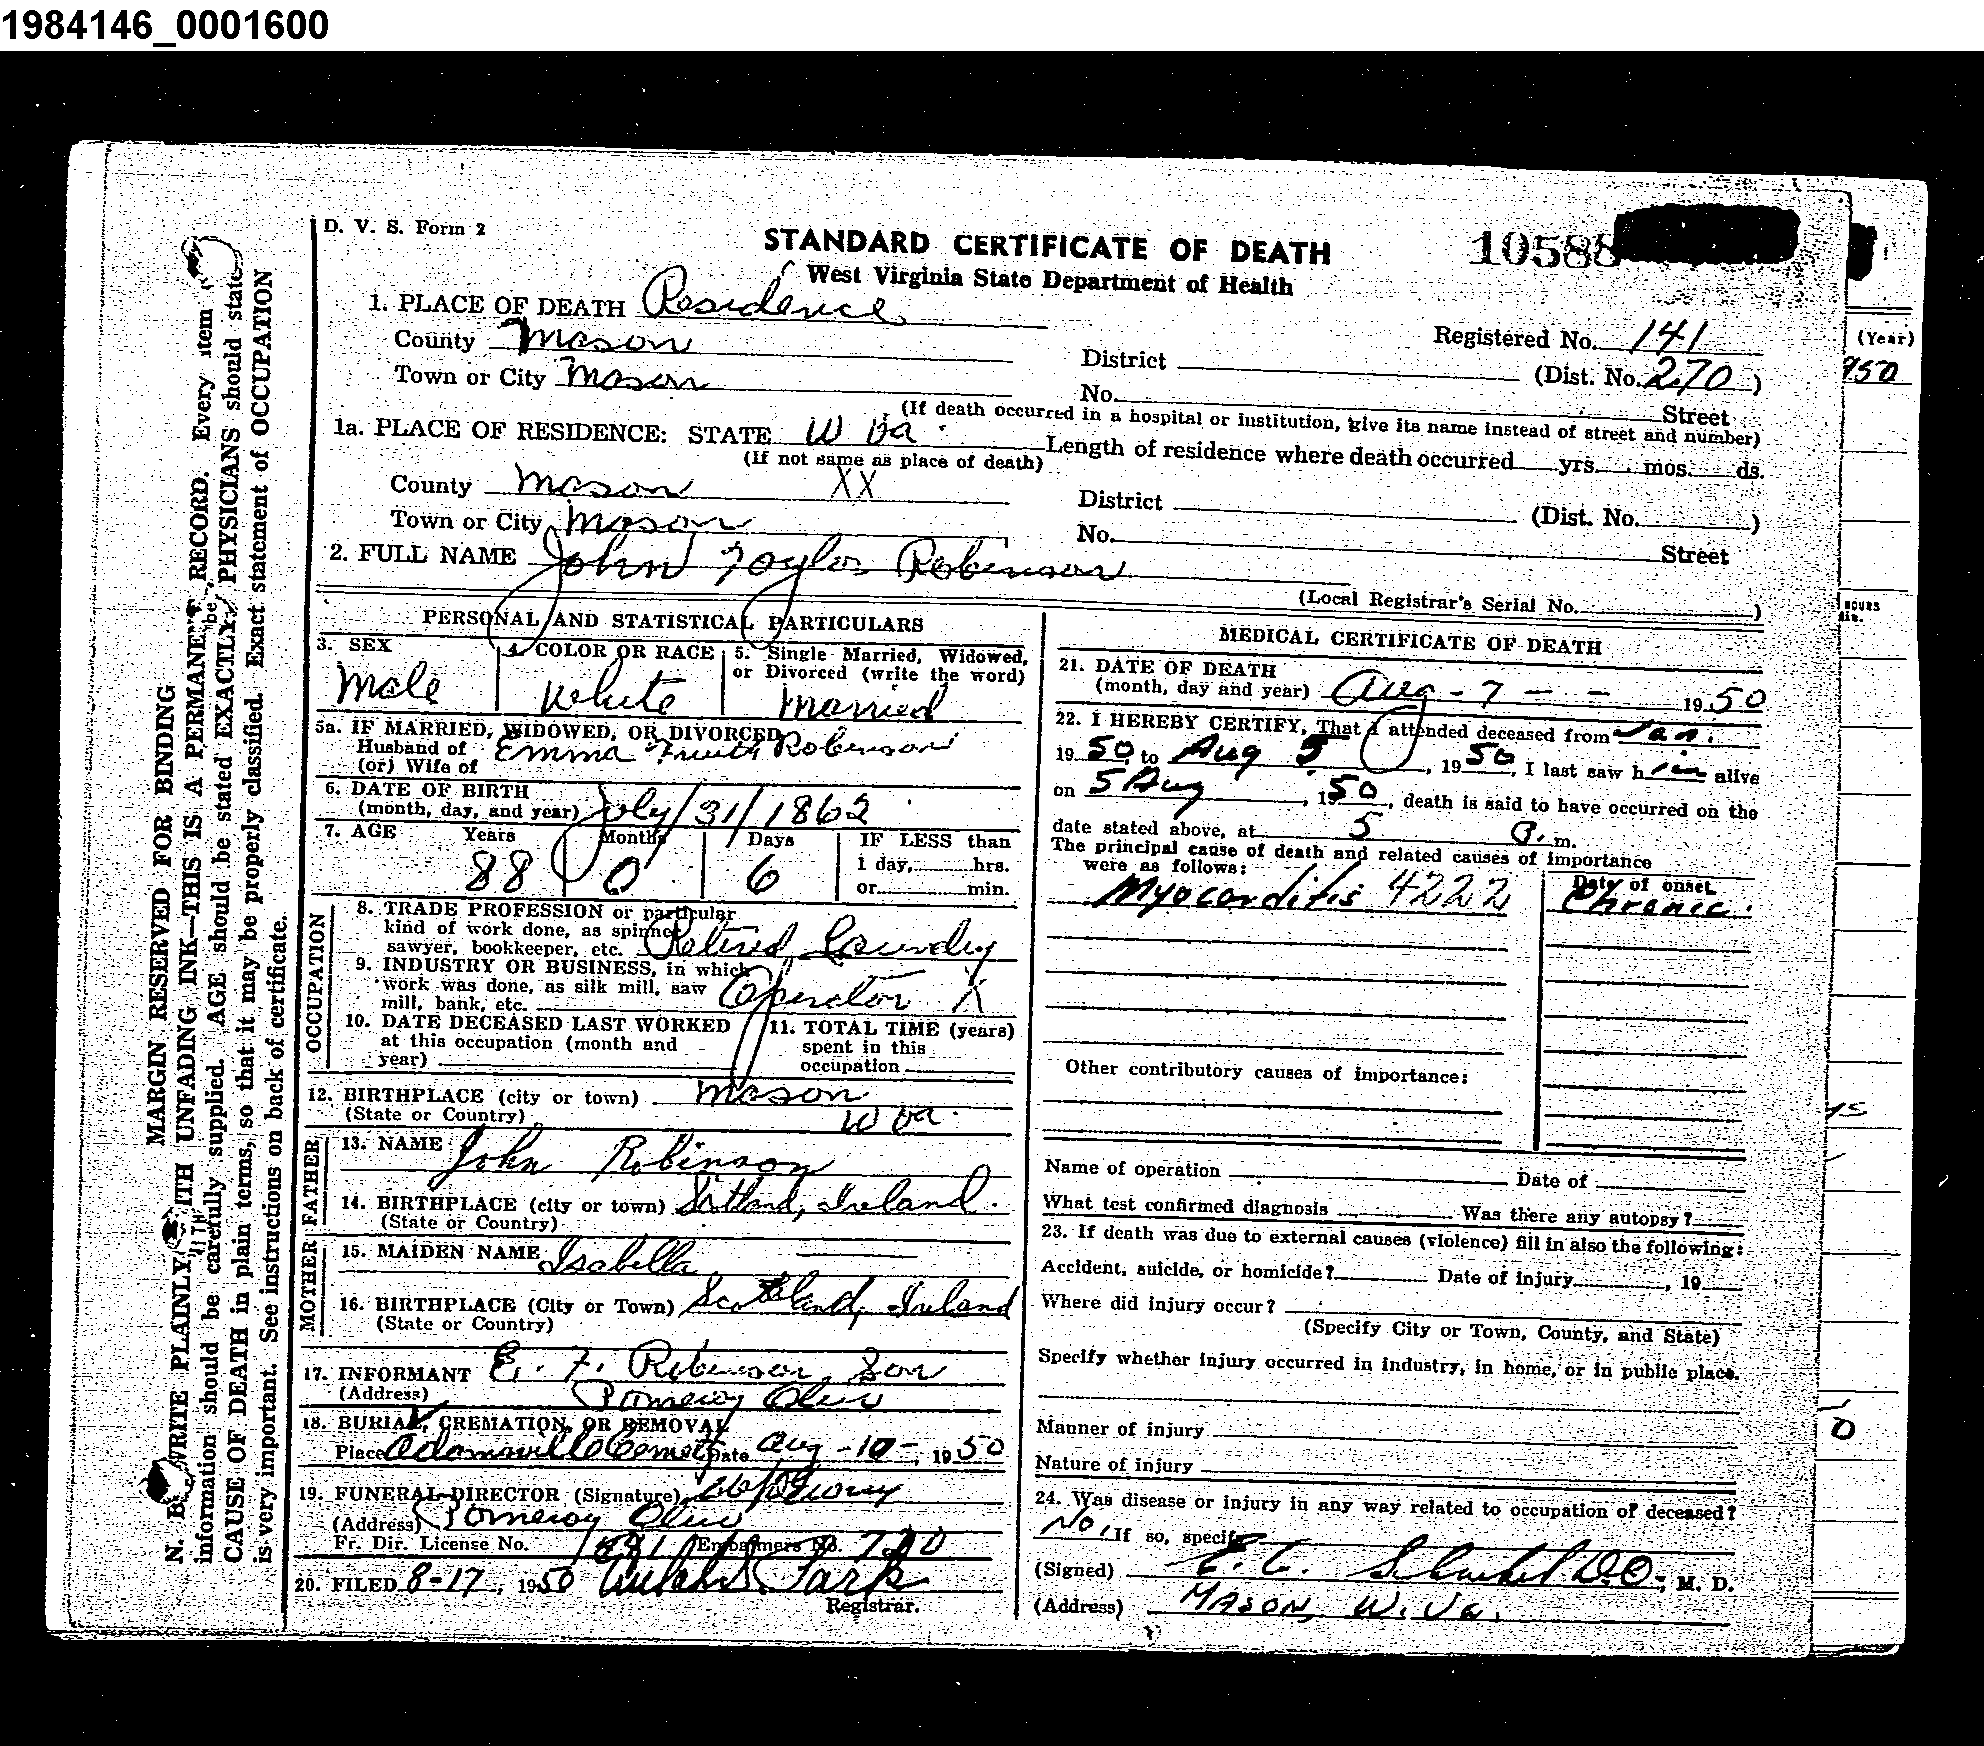 1984146_0001600
D. V. S. Form 2
STANDARD CERTIFICATE OF DEATH
10588
West Virginia State Department of Health
1. PLACE OF DEATH Residence
Registered No. 141
(Year)
County Mason
District (Dist. No. 270)
950
Town or City Mason
No. Street
(If death occurred in a hospital or institution, give its name instead of street and number)
1a. PLACE OF RESIDENCE: STATE W Va.
Length of residence where death occurred yrs. mos. ds.
(If not same as place of death)
County Mason XX
District (Dist. No. )
Town or City Mason
No. Street
2. FULL NAME John Taylor Robinson
(Local Registrar's Serial No. )
PERSONAL AND STATISTICAL PARTICULARS
3. SEX
Male
4. COLOR OR RACE
White
5. Single Married, Widowed,
or Divorced (write the word)
Married
5a. IF MARRIED, WIDOWED, OR DIVORCED
Husband of Emma Robinson
(or) Wife of
6. DATE OF BIRTH
(month, day, and year) July/31/1862
7. AGE Years Months Days IF LESS than
1 day, hrs.
or min.
88 0 6
OCCUPATION
8. TRADE PROFESSION or particular
kind of work done, as spinner
sawyer, bookkeeper, etc. Retired Laundry
9. INDUSTRY OR BUSINESS, in which
work was done, as silk mill, saw
mill, bank, etc. Operator X
10. DATE DECEASED LAST WORKED
at this occupation (month and
year)
11. TOTAL TIME (years)
spent in this
occupation
12. BIRTHPLACE (city or town) Mason
(State or Country) W Va.
FATHER
13. NAME John Robinson
14. BIRTHPLACE (city or town) Ireland.
(State or Country)
MOTHER
15. MAIDEN NAME Isabella
16. BIRTHPLACE (City or Town) Scotland, Ireland
(State or Country)
17. INFORMANT E. F. Robinson, Son
(Address) Pomeroy Ohio
18. BURIAL, CREMATION, OR REMOVAL
Place Adamsville Cemety Date Aug-10-, 1950
19. FUNERAL DIRECTOR (Signature)
(Address) Pomeroy Ohio
Fr. Dir. License No. Embalmers No.
20. FILED 8-17, 1950
Registrar.
MEDICAL CERTIFICATE OF DEATH
21. DATE OF DEATH
(month, day and year) Aug-7-- 1950
22. I HEREBY CERTIFY, That I attended deceased from Jan.
1950 to Aug 5, 1950, I last saw him alive
on 5 Aug, 1950, death is said to have occurred on the
date stated above, at 5 m.
The principal cause of death and related causes of importance
were as follows:
Date of onset
Myocarditis 4222 Chronic.
Other contributory causes of importance:
Name of operation Date of
What test confirmed diagnosis Was there any autopsy?
23. If death was due to external causes (violence) fill in also the following:
Accident, suicide, or homicide? Date of injury , 19
Where did injury occur?
(Specify City or Town, County, and State)
Specify whether injury occurred in industry, in home, or in public place.
Manner of injury
Nature of injury
24. Was disease or injury in any way related to occupation of deceased?
No, If so, specify
(Signed) E. C. D.O., M. D.
(Address) MASON, W. Va.
MARGIN RESERVED FOR BINDING
N. B. WRITE PLAINLY, WITH UNFADING INK—THIS IS A PERMANENT RECORD. Every item
information should be carefully supplied. AGE should be stated EXACTLY. PHYSICIANS should state
CAUSE OF DEATH in plain terms, so that it may be properly classified. Exact statement of OCCUPATION
is very important. See instructions on back of certificate.